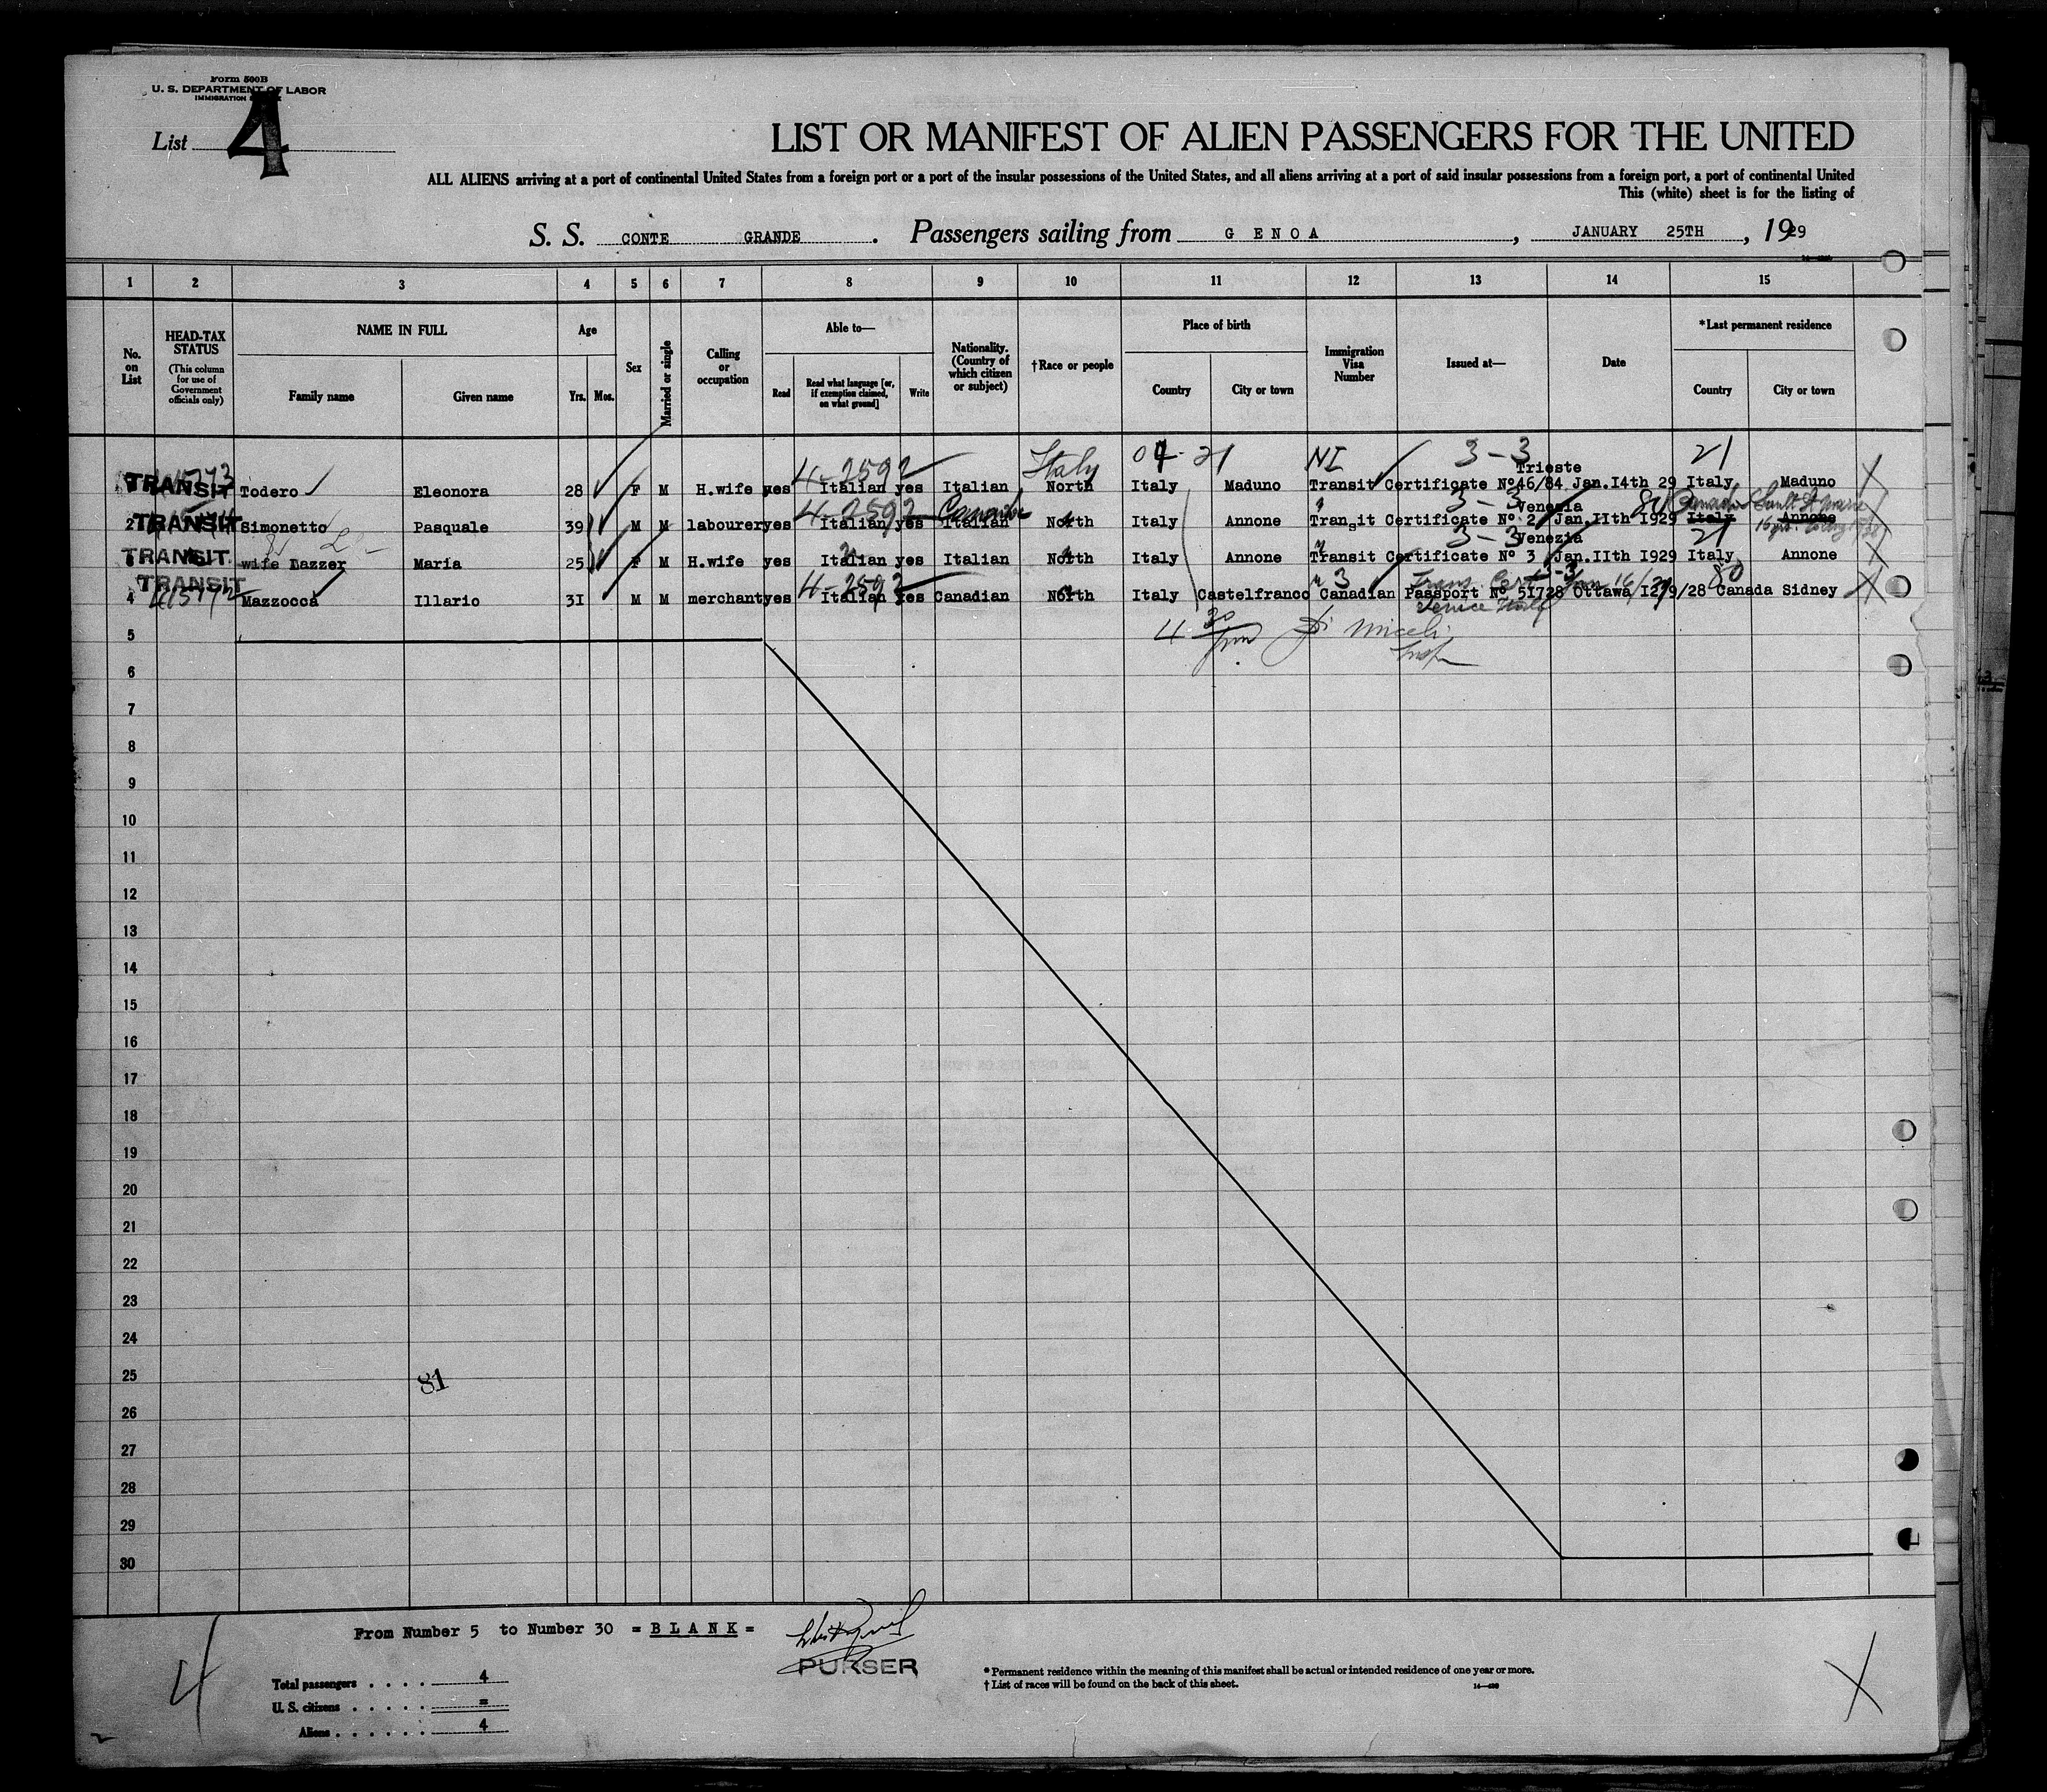 Form 500B
U. S. DEPARTMENT OF LABOR
IMMIGRATION
List 4
LIST OR MANIFEST OF ALIEN PASSENGERS FOR THE UNITED
ALL ALIENS arriving at a port of continental United States from a foreign port or a port of the insular possessions of the United States, and all aliens arriving at a port of said insular possessions from a foreign port, a port of continental United
This (white) sheet is for the listing of
S. S. CONTE GRANDE . Passengers sailing from GENOA , JANUARY 25TH , 1929
1 2 3 4 5 6 7 8 9 10 11 12 13 14 15
No. on List
HEAD-TAX STATUS (This column for use of Government officials only)
NAME IN FULL
Family name Given name
Age
Yrs. Mos.
Sex
Married or single
Calling or occupation
Able to—
Read Read what language [or, if exemption claimed, on what ground] Write
Nationality. (Country of which citizen or subject)
†Race or people
Place of birth
Country City or town
Immigration Visa Number
Issued at—
Date
*Last permanent residence
Country City or town
4-2592 Italy 04-21 NI 3-3 21
Trieste
TRANSIT Todero Eleonora 28 F M H.wife yes Italian yes Italian North Italy Maduno Transit Certificate Nº46/84 Jan.I4th 29 Italy Maduno
4-2592 Canada 3-3 Venezia Canada Sault St Marie
2 TRANSIT Simonetto Pasquale 39 M M labourer yes Italian yes Italian North Italy Annone Transit Certificate Nº 2 Jan.IIth I929 Italy Annone
3-3 Venezia 21
TRANSIT wife Dazzer Maria 25 F M H.wife yes Italian yes Italian North Italy Annone Transit Certificate Nº 3 Jan.IIth I929 Italy Annone
TRANSIT 4-2592 3 Trans. Cert 3-3 Jan 16/29 80
4 Mazzocca Illario 3I M M merchant yes Italian yes Canadian North Italy Castelfranco Canadian Passport Nº 5I728 Ottawa I2/9/28 Canada Sidney
Venice Italy
5 4 30 pm Miceli
Insp
6
7
8
9
10
11
12
13
14
15
16
17
18
19
20
21
22
23
24
25 81
26
27
28
29
30
From Number 5 to Number 30 = BLANK =
PURSER
4 X
Total passengers . . . . 4
U. S. citizens . . . . . =
Aliens . . . . . . 4
* Permanent residence within the meaning of this manifest shall be actual or intended residence of one year or more.
† List of races will be found on the back of this sheet.